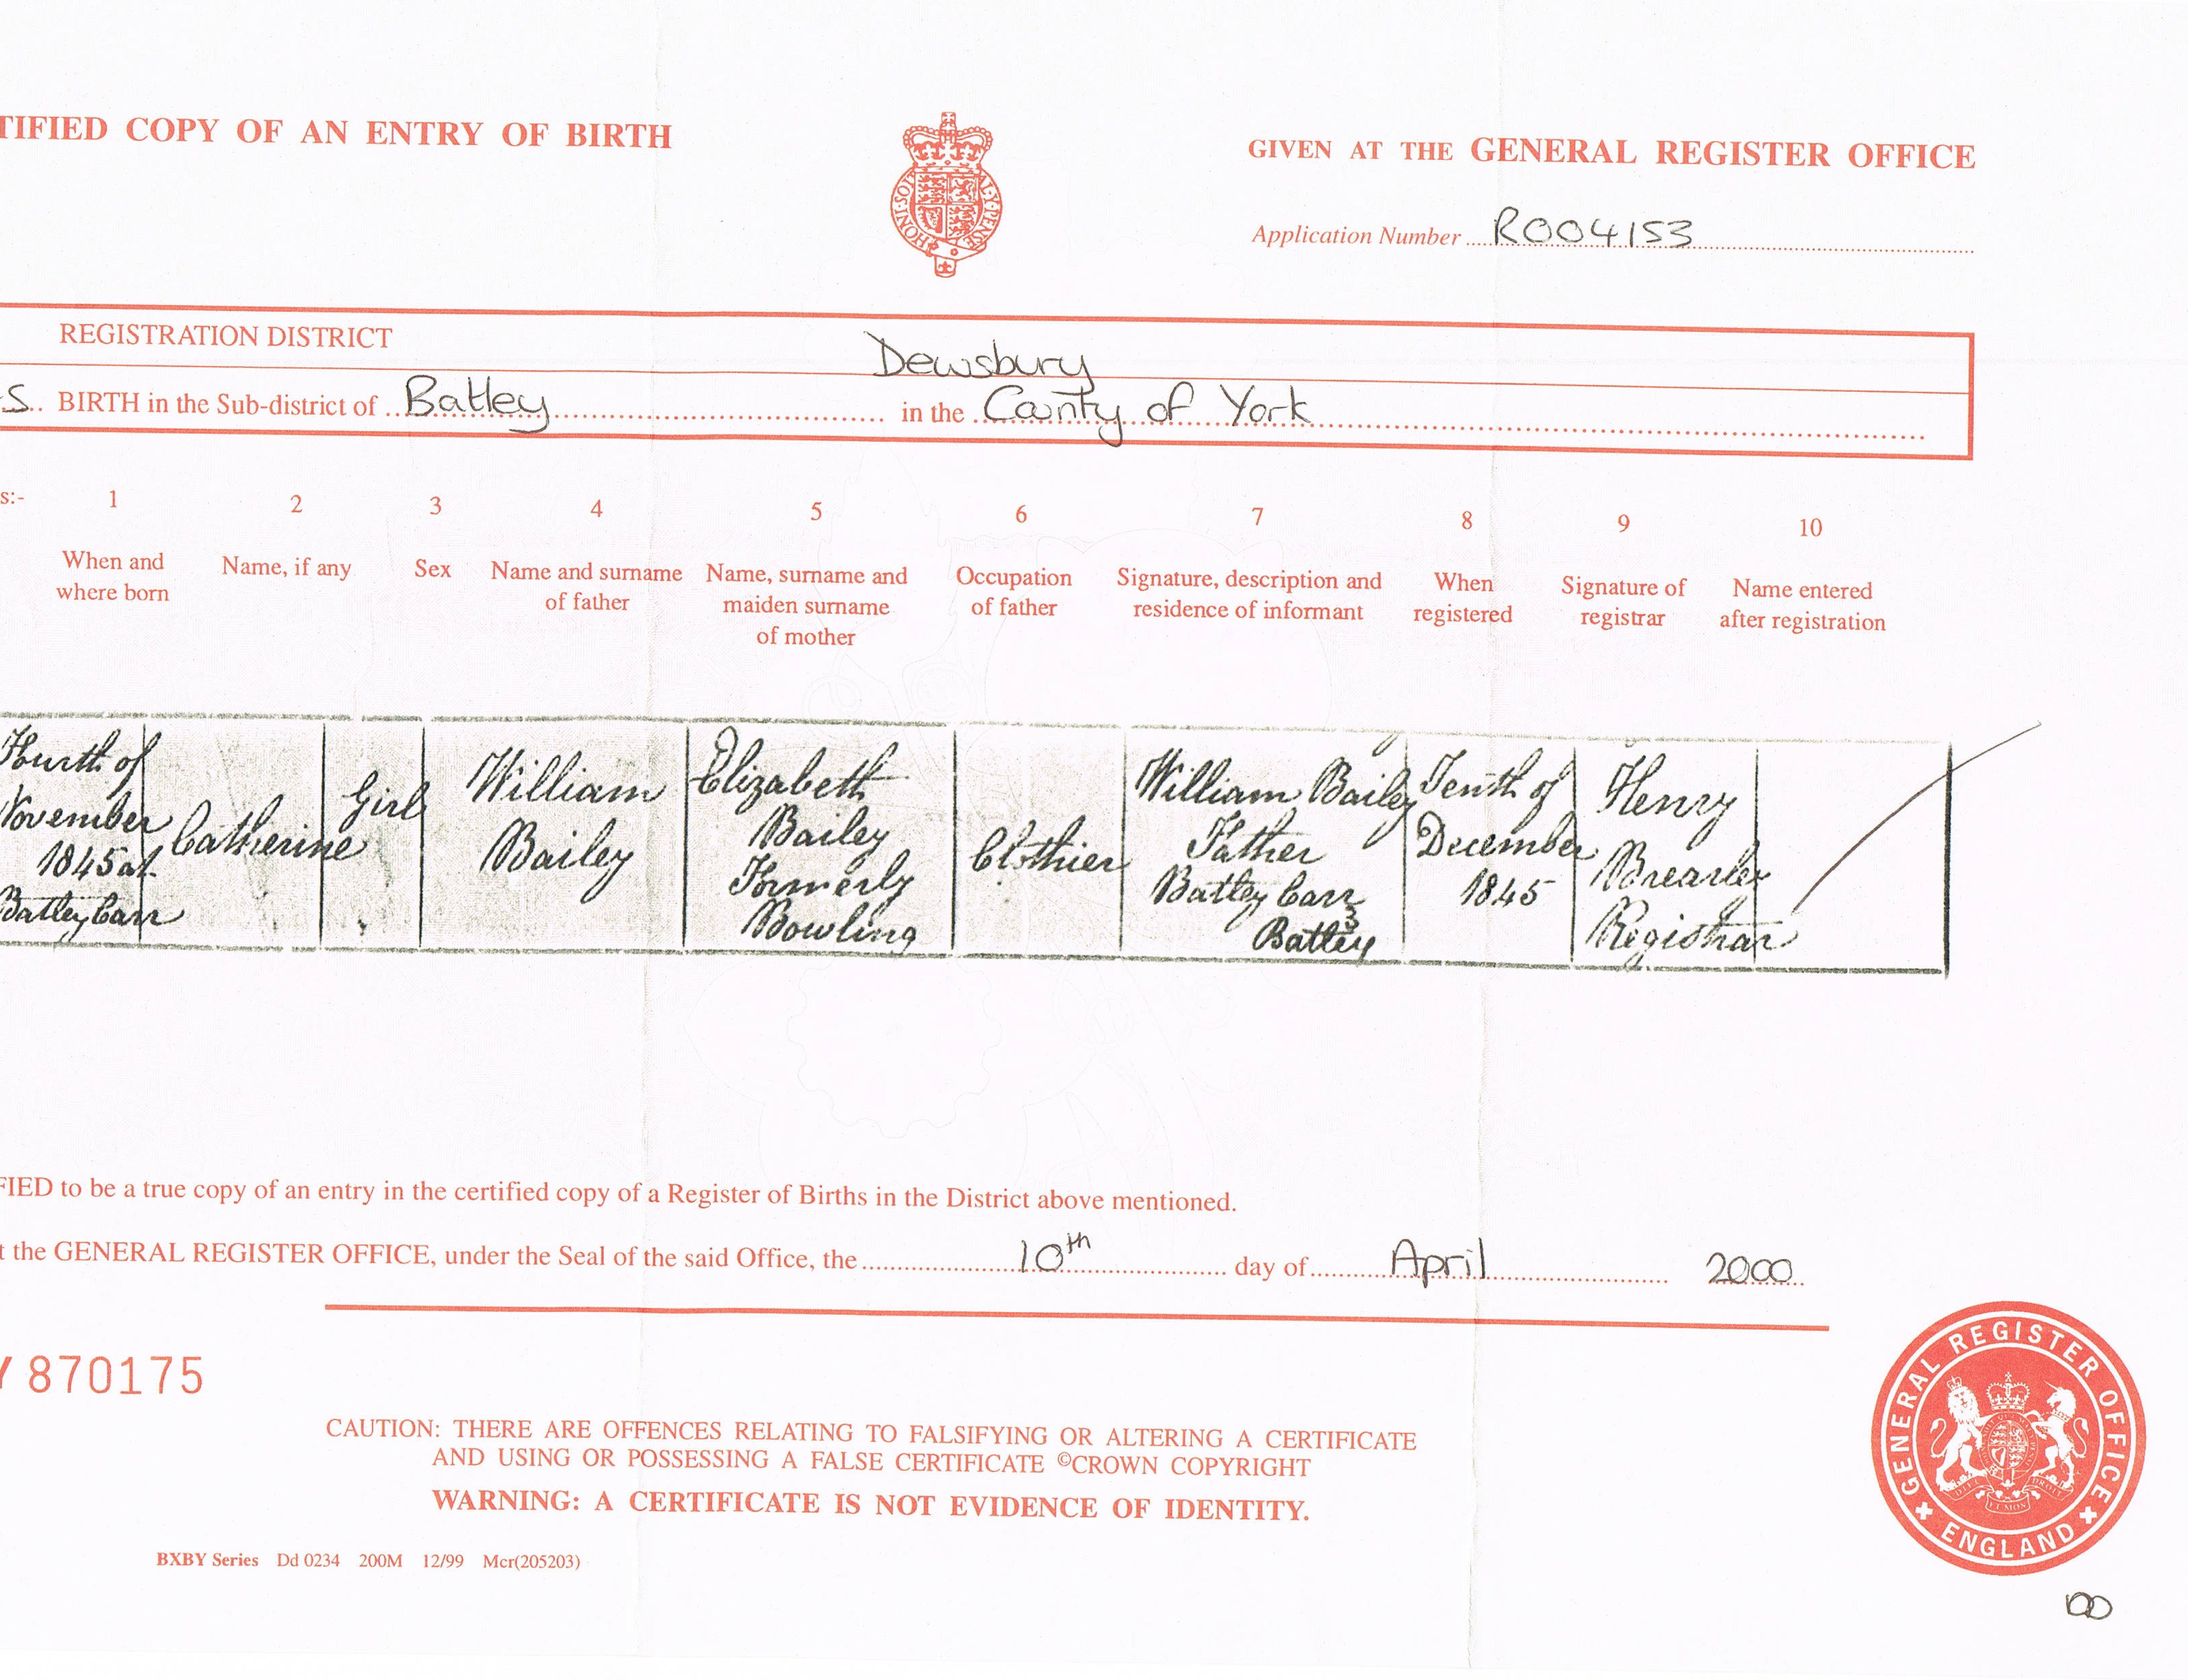 TIFIED COPY OF AN ENTRY OF BIRTH
GIVEN AT THE GENERAL REGISTER OFFICE
HONI·SOIT AL·Y·PENSE
Application Number R004153
REGISTRATION DISTRICT Dewsbury
S BIRTH in the Sub-district of Batley in the County of York
s:- 1 2 3 4 5 6 7 8 9 10
When and where born
Name, if any
Sex
Name and surname of father
Name, surname and maiden surname of mother
Occupation of father
Signature, description and residence of informant
When registered
Signature of registrar
Name entered after registration
Fourth of
November
1845 at
Batley Carr
Catherine
Girl
William
Bailey
Elizabeth
Bailey
Formerly
Bowling
Clothier
William Bailey
Father
Batley Carr
Batley
Tenth of
December
1845
Henry
Brearley
Registrar
FIED to be a true copy of an entry in the certified copy of a Register of Births in the District above mentioned.
t the GENERAL REGISTER OFFICE, under the Seal of the said Office, the 10th day of April 2000
Y 870175
CAUTION: THERE ARE OFFENCES RELATING TO FALSIFYING OR ALTERING A CERTIFICATE
AND USING OR POSSESSING A FALSE CERTIFICATE ©CROWN COPYRIGHT
WARNING: A CERTIFICATE IS NOT EVIDENCE OF IDENTITY.
BXBY Series Dd 0234 200M 12/99 Mcr(205203)
GENERAL REGISTER OFFICE
ENGLAND